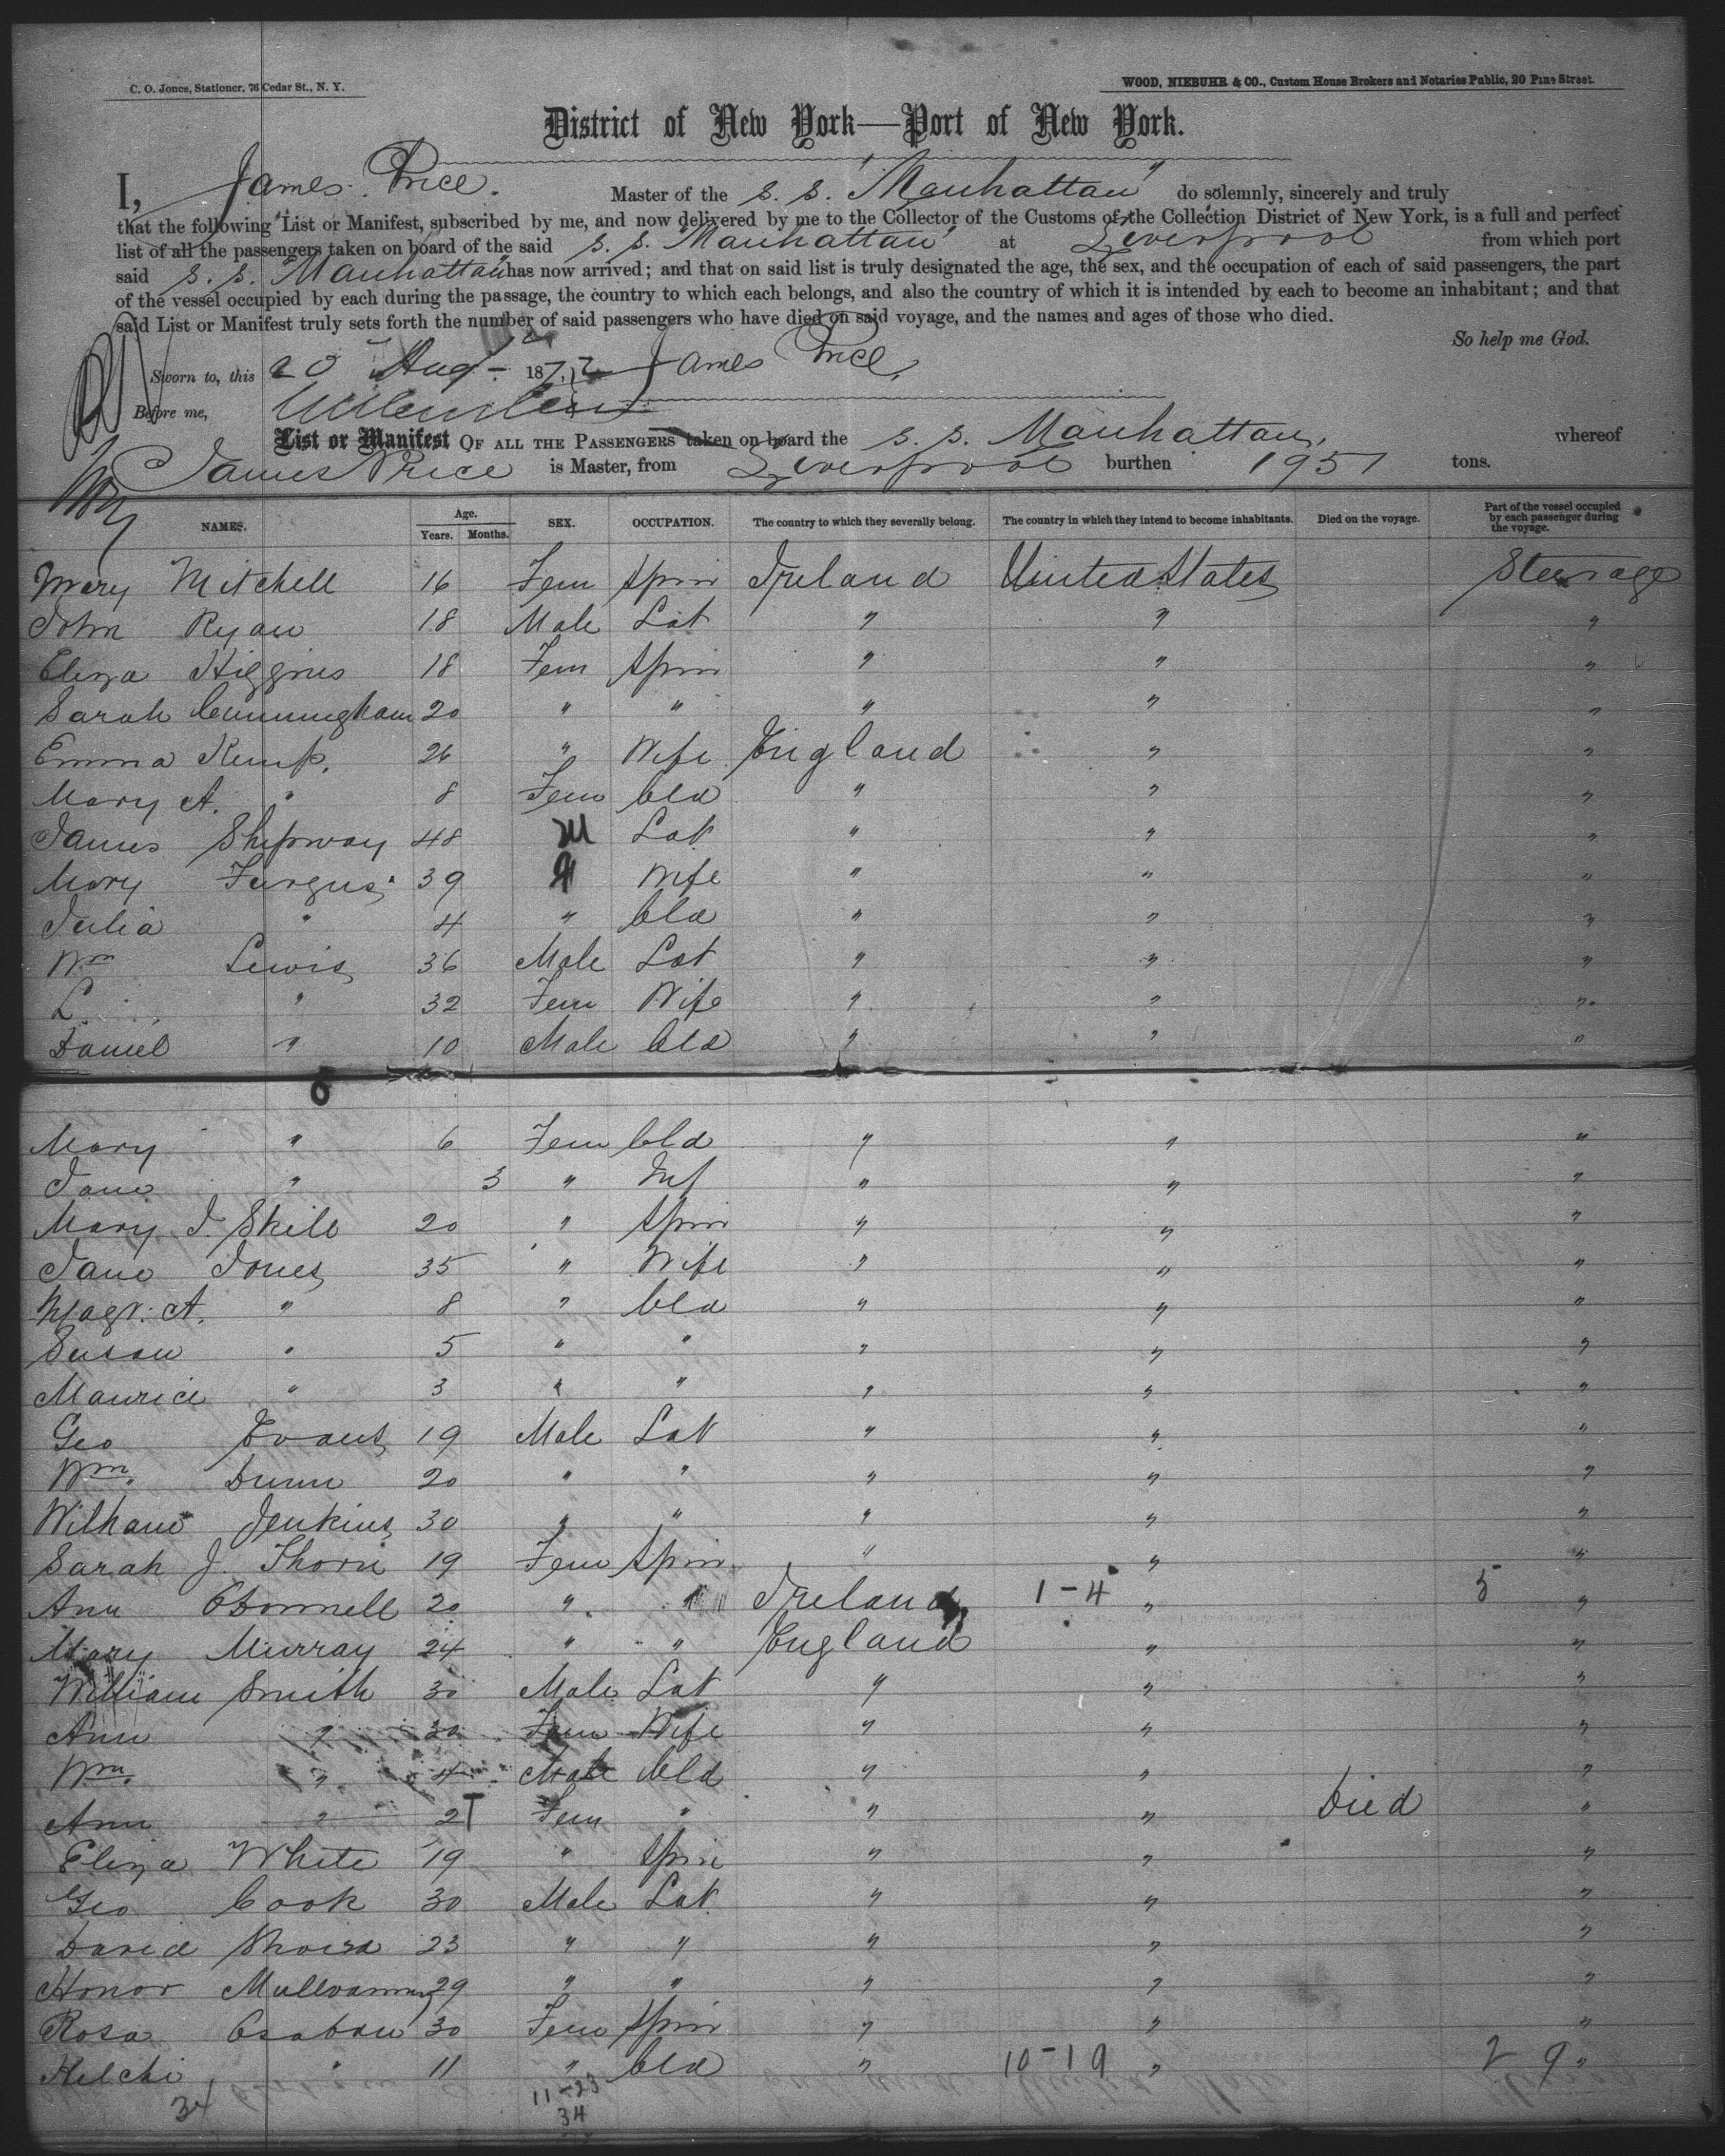 C. O. Jones, Stationer, 76 Cedar St., N. Y.
WOOD, NIEBUHR & CO., Custom House Brokers and Notaries Public, 20 Pine Street.
District of New York—Port of New York.
I, James Price. Master of the S. S. "Manhattan" do solemnly, sincerely and truly
that the following List or Manifest, subscribed by me, and now delivered by me to the Collector of the Customs of the Collection District of New York, is a full and perfect
list of all the passengers taken on board of the said S. S. "Manhattan" at Liverpool from which port
said S. S. "Manhattan" has now arrived; and that on said list is truly designated the age, the sex, and the occupation of each of said passengers, the part
of the vessel occupied by each during the passage, the country to which each belongs, and also the country of which it is intended by each to become an inhabitant; and that
said List or Manifest truly sets forth the number of said passengers who have died on said voyage, and the names and ages of those who died.
So help me God.
Sworn to, this 20 Aug. 1872 James Price.
Before me,
List or Manifest OF ALL THE PASSENGERS taken on board the S. S. Manhattan, whereof
James Price is Master, from Liverpool burthen 1951 tons.
NAMES. Age. Years. Months. SEX. OCCUPATION. The country to which they severally belong. The country in which they intend to become inhabitants. Died on the voyage. Part of the vessel occupied by each passenger during the voyage.
Mary Mitchell 16 Fem Spin Ireland United States Steerage
John Ryan 18 Male Lab " " "
Eliza Higgins 18 Fem Spin " " "
Sarah Cunningham 20 " " " " "
Emma Kemp. 26 " Wife England " "
Mary A. " 8 Fem Cld " " "
James Shipway 48 M Lab " " "
Mary Fargus 39 F Wife " " "
Julia " 4 " Cld " " "
Wm Lewis 36 Male Lab " " "
L. " 32 Fem Wife " " "
Daniel " 10 Male Cld " " "
Mary " 6 Fem Cld " " "
Jane " 3 " Inf " " "
Mary J. Skile 20 " Spin " " "
Jane Jones 35 " Wife " " "
Magt. A. " 8 " Cld " " "
Susan " 5 " " " " "
Maurice " 3 " " " " "
Geo Evans 19 Male Lab " " "
Wm. Dunn 20 " " " " "
William Jenkins 30 " " " " "
Sarah J. Thorn 19 Fem Spin " " "
Ann ODonnell 20 " " Ireland 1-4 " 5 "
Mary Murray 24 " " England " "
William Smith 30 Male Lab " " "
Ann " 30 Fem Wife " " "
Wm. " 4 Male Cld " " "
Ann " 2 Fem " " " Died "
Eliza White 19 " Spin " " "
Geo Cook 30 Male Lab " " "
David 23 " " " " "
Honor Mullvanny 29 " " " " "
Rosa 30 Fem Spin " " "
" 11 " Cld " 10-19 " 2 9 "
34 11-23
34